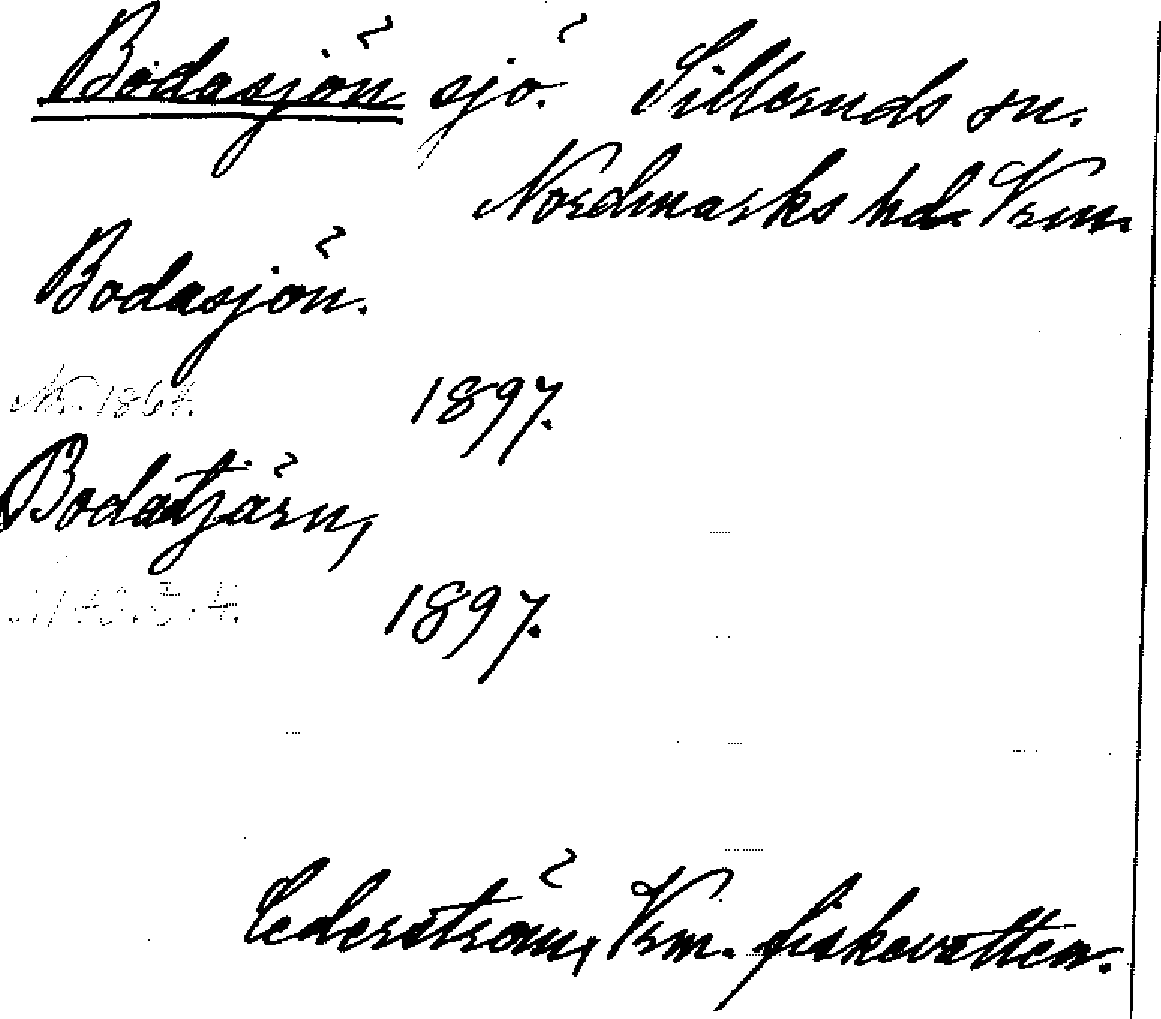 Bodasjön sjö. Silleruds sn.
Nordmarks hd. Vrm.
Bodasjön.
1897.
Bodatjärn,
1897.
Cederström, Vrm. fiskevatten.